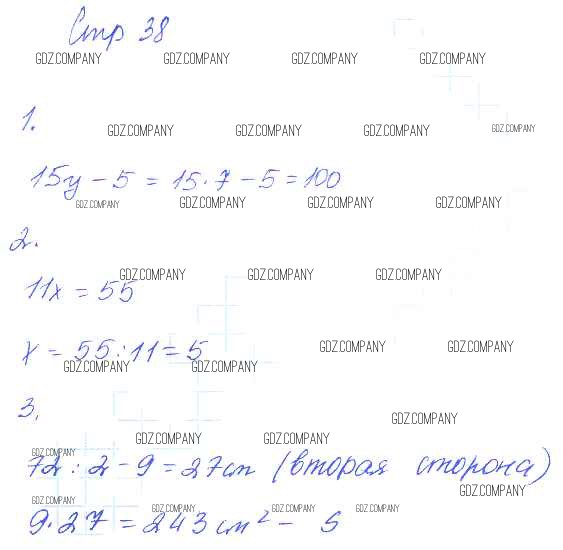 Стр 38
GDZ.COMPANY GDZ.COMPANY GDZ.COMPANY GDZ.COMPANY
1.
GDZ.COMPANY GDZ.COMPANY GDZ.COMPANY GDZ.COMPANY
15y - 5 = 15·7 - 5 = 100
GDZ.COMPANY GDZ.COMPANY GDZ.COMPANY GDZ.COMPANY
2.
GDZ.COMPANY GDZ.COMPANY GDZ.COMPANY
11x = 55
GDZ.COMPANY GDZ.COMPANY
x = 55:11 = 5
GDZ.COMPANY GDZ.COMPANY
3.
GDZ.COMPANY
GDZ.COMPANY GDZ.COMPANY
GDZ.COMPANY
72 : 2 - 9 = 27 см (вторая сторона)
GDZ.COMPANY
GDZ.COMPANY GDZ.COMPANY GDZ.COMPANY GDZ.COMPANY
9·27 = 243 см² - S